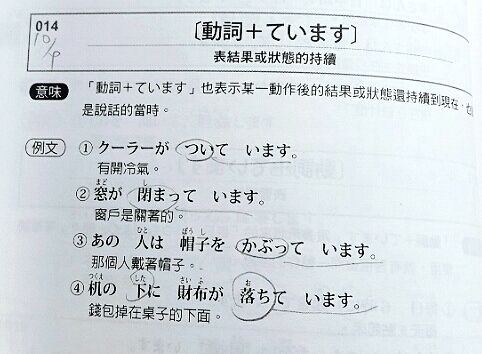 014
10/9
〔動詞+ています〕
表結果或狀態的持續
意味 「動詞+ています」也表示某一動作後的結果或狀態還持續到現在,也
是說話的當時。
例文 ① クーラーが ついて います。
有開冷氣。
② 窓が 閉まって います。
窗戶是關著的。
③ あの 人は 帽子を かぶって います。
那個人戴著帽子。
④ 机の 下に 財布が 落ちて います。
錢包掉在桌子的下面。